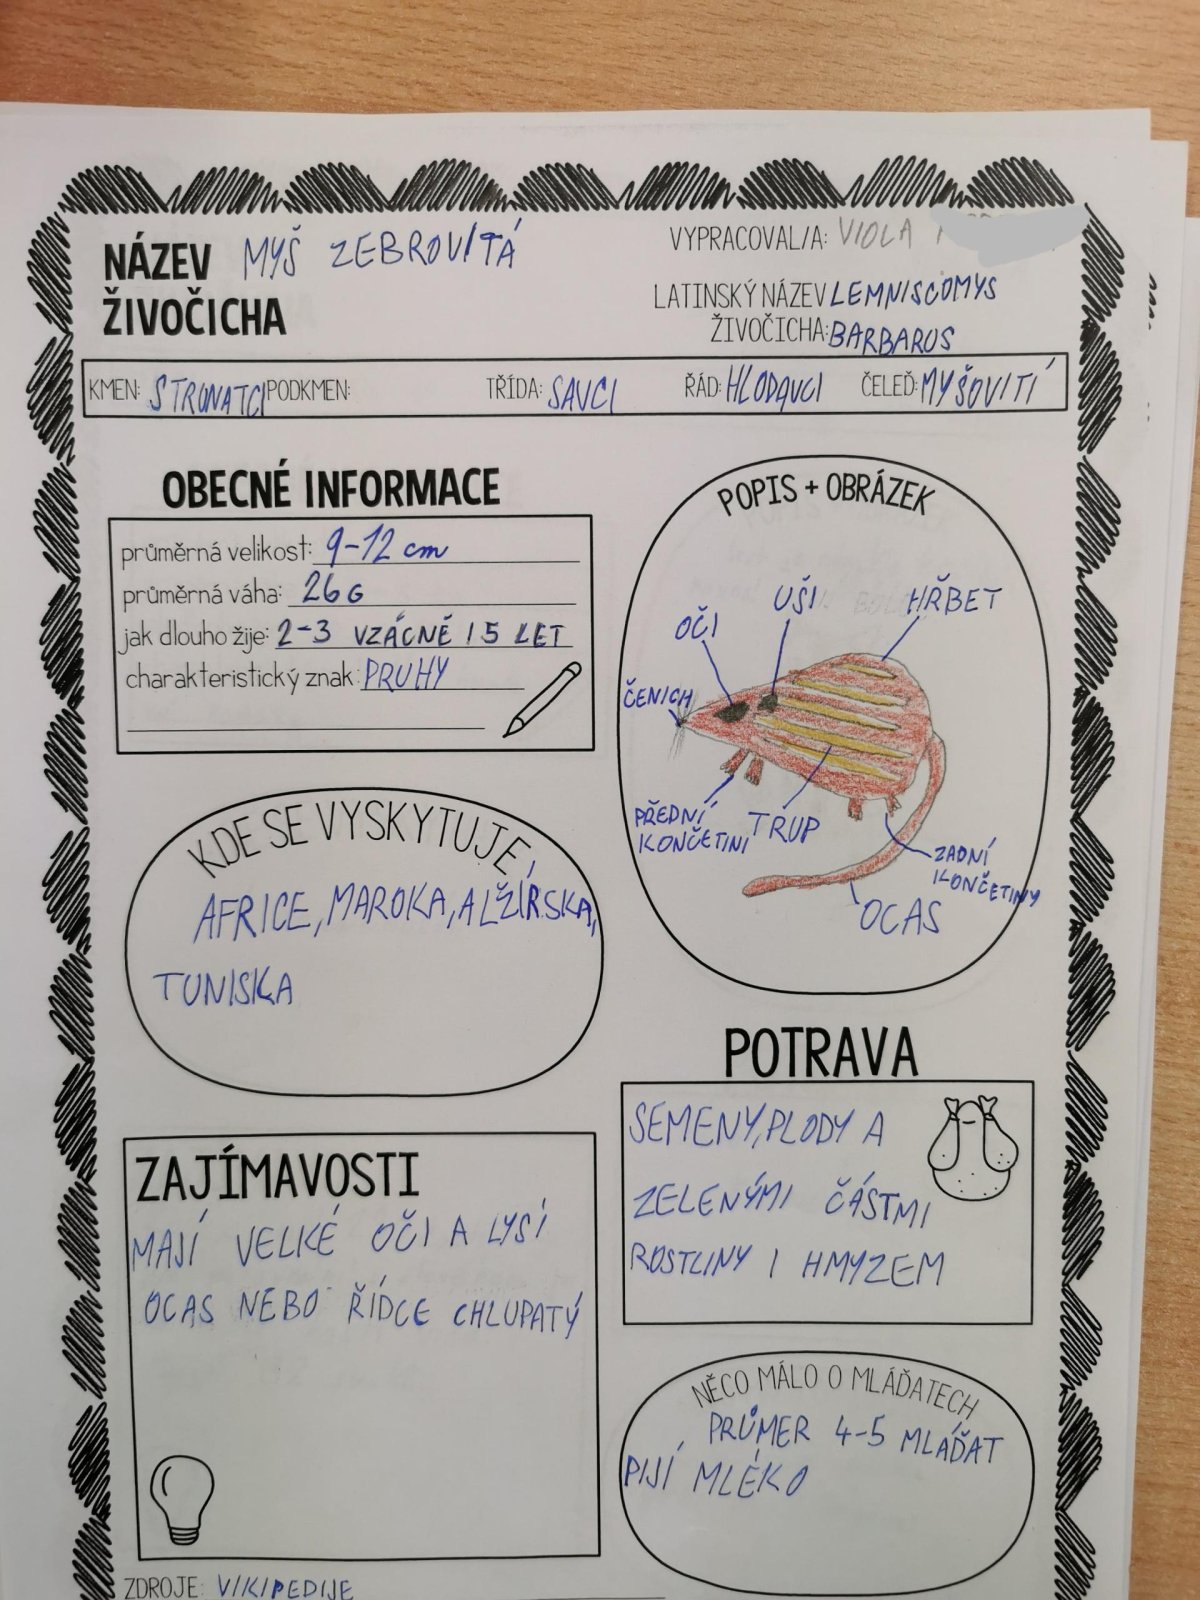 NÁZEV MYŠ ZEBROVITÁ
ŽIVOČICHA
VYPRACOVAL/A: VIOLA
LATINSKÝ NÁZEV LEMNISCOMYS
ŽIVOČICHA: BARBARUS
KMEN: STRUNATCI PODKMEN: TŘÍDA: SAVCI ŘÁD: HLODAVCI ČELEĎ: MYŠOVITÍ
OBECNÉ INFORMACE
průměrná velikost: 9-12 cm
průměrná váha: 26 G
jak dlouho žije: 2-3 VZÁCNĚ I 5 LET
charakteristický znak: PRUHY
POPIS + OBRÁZEK
OČI
UŠI
HŘBET
ČENICH
PŘEDNÍ
KONČETINI
TRUP
ZADNÍ
KONČETINY
OCAS
KDE SE VYSKYTUJE
AFRICE, MAROKA, ALŽÍRSKA,
TUNISKA
POTRAVA
SEMENY, PLODY A
ZELENÝMI ČÁSTMI
ROSTLINY I HMYZEM
ZAJÍMAVOSTI
MAJÍ VELKÉ OČI A LYSÍ
OCAS NEBO ŘÍDCE CHLUPATÝ
NĚCO MÁLO O MLÁĎATECH
PRŮMER 4-5 MLÁĎAT
PIJÍ MLÉKO
ZDROJE: VIKIPEDIJE